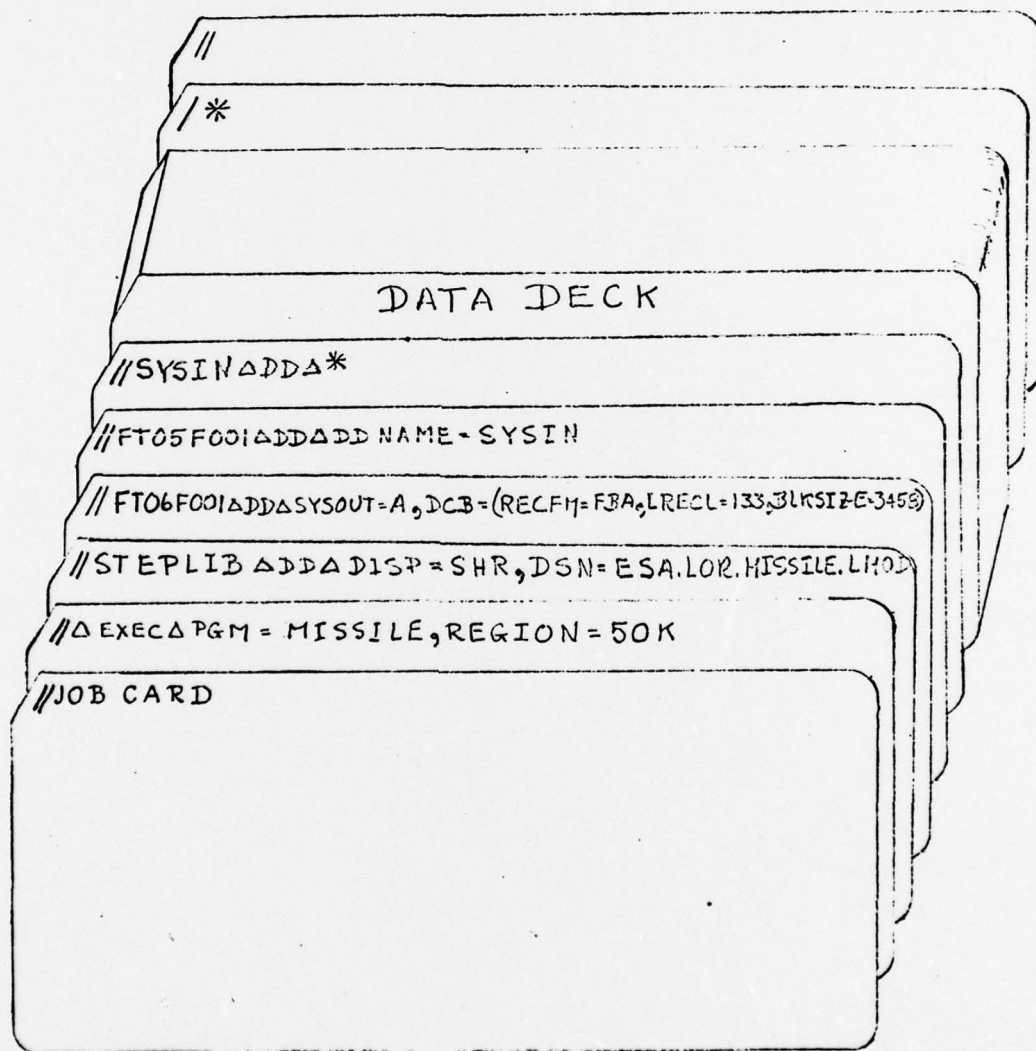 //
/*
DATA DECK
//SYSINΔDDΔ*
//FT05F001ΔDDΔDDNAME=SYSIN
//FT06F001ΔDDΔSYSOUT=A,DCB=(RECFM=FBA,LRECL=133,BLKSIZE=3458)
//STEPLIBΔDDΔDISP=SHR,DSN=ESA.LOR.MISSILE.LMOD
//ΔEXECΔPGM=MISSILE,REGION=50K
//JOB CARD